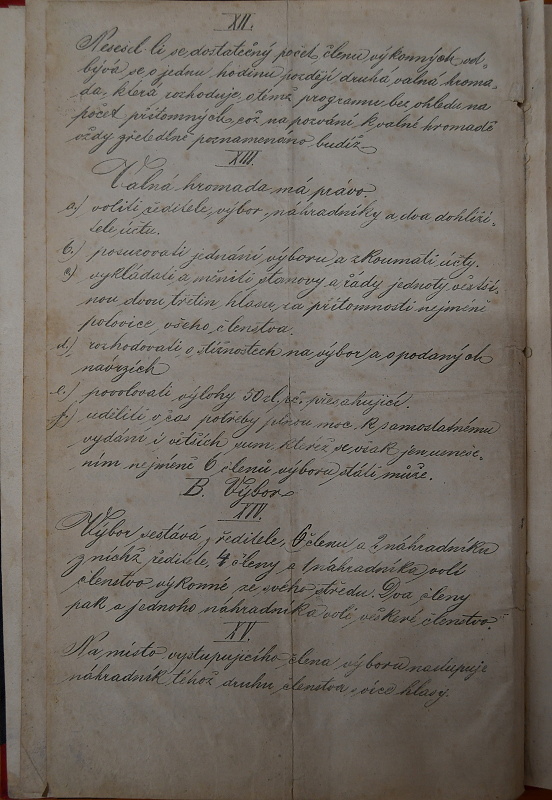 XII.
Nesešel-li se dostatečný počet členu výkonných, od-
bývá se o jednu hodinu později druhá valná hroma-
da, která rozhoduje o témž programu bez ohledu na
počet přítomných, což na pozvání k valné hromadě
vždy zřetedlně poznamenáno budiž.
XIII.
Valná hromada má právo
a.) voliti ředitele, výbor, náhradníky a dva dohliži-
tele účtu.
b.) posuzovati jednání výboru a zkoumati účty.
c) vykládati a měniti stanovy a řády jednoty větši-
nou dvou třetin hlasu, za přítomnosti nejméně
polovice všeho členstva.
d.) rozhodovati o stížnostech na výbor a o podaných
návrzích
e.) povolovati výlohy 50 zl. rč. přesahující.
f.) uděliti v čas potřeby plnou moc k samostatnému
vydání i větších sum, kteréž se však jen usneše-
ním nejméně 6 členů výboru státi může.
B. Výbor
XIV.
Výbor sestává z ředitele, 6 členu a 2 náhradníku
z nichž ředitele, 4 členy a 1 náhradníka volí
členstvo výkonné ze svého středu. Dva členy
pak a jednoho náhradníka volí veškeré členstvo.
XV.
Na místo vystupujícího člena výboru nastupuje
náhradník téhož druhu členstva s více hlasy.